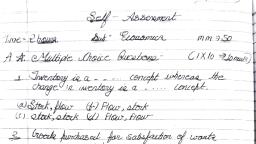 Self - Assessment
Time - 2 hours Sub: Economics M M → 50
A A. Multiple Choice Questions: (1 X 10 → 10 marks)
1 Inventory is a - - - - concept whereas the
change in inventory is a ..... concept.
(a) Stock, flow (b) Flow, stock
(c) stock, stock (d) Flow, flow
2 Goods purchased for satisfaction of wants